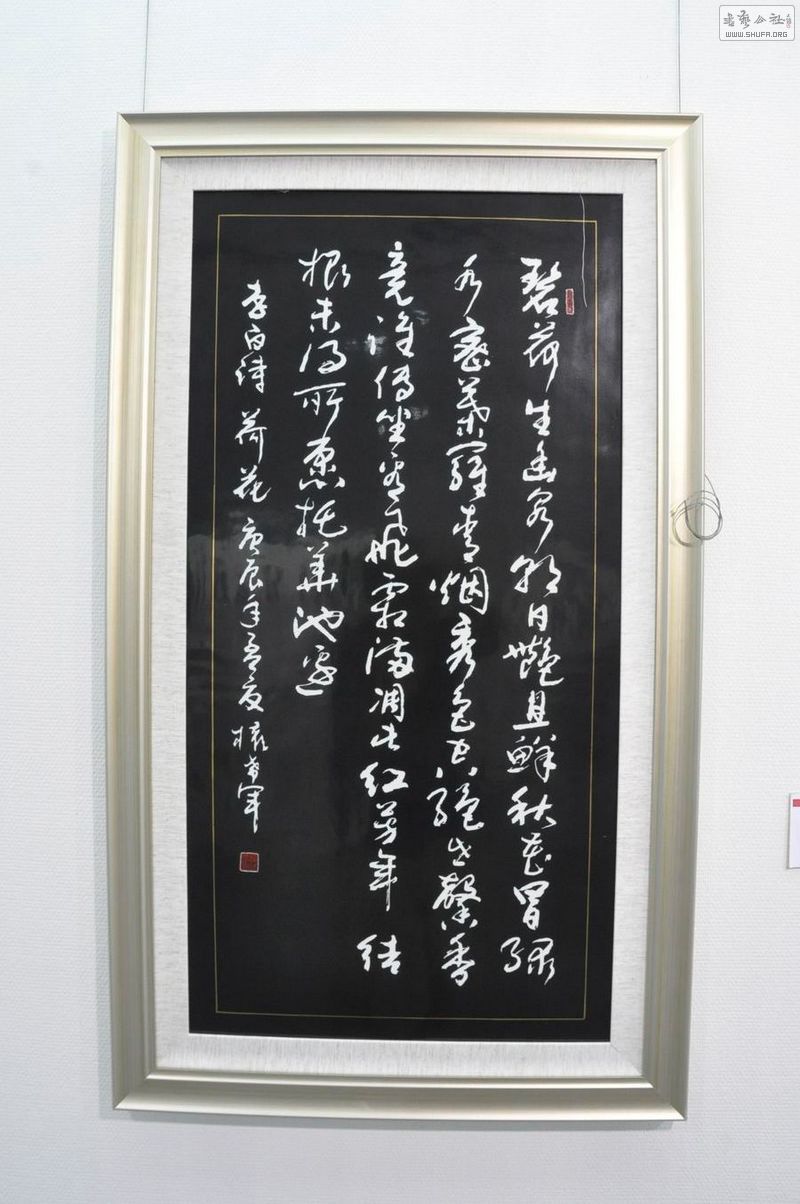 碧荷生幽泉朝日艷且鮮秋花冒綠
水密葉羅青烟秀色空絕世馨香
竟誰傳坐看飛霜滿凋此紅芳年結
根未得所愿托華池邊
李白詩 荷花 庚辰年孟夏
書藝公社
WWW.SHUFA.ORG